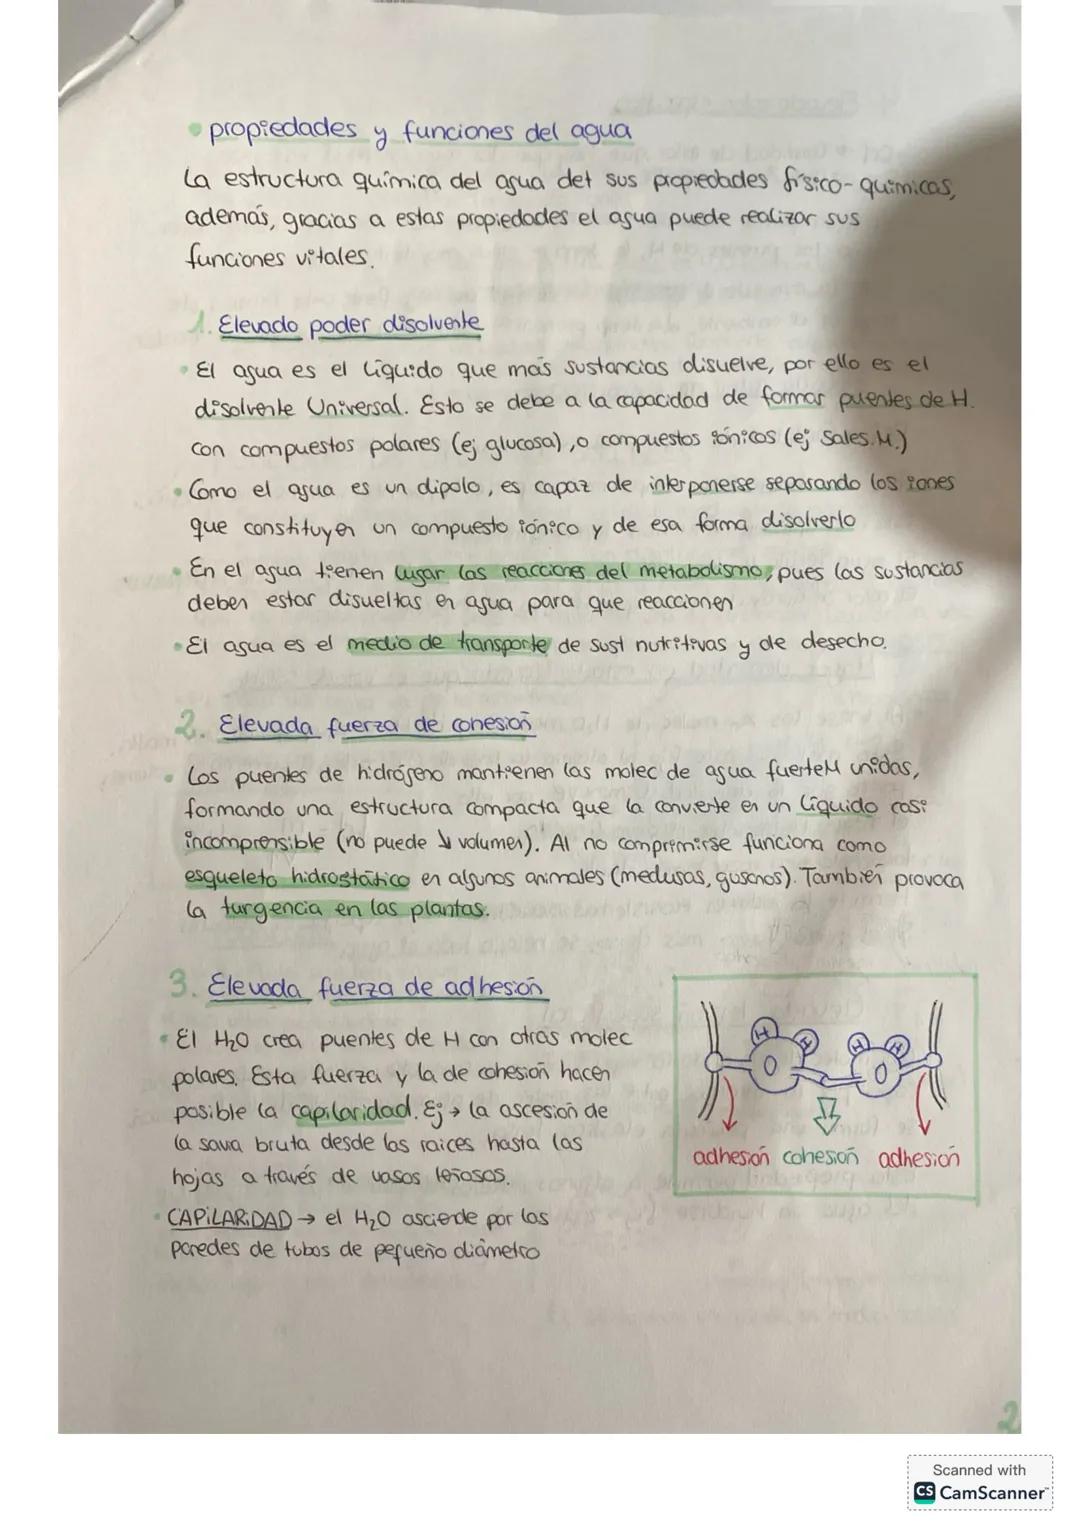 propiedades y funciones del agua
La estructura química del agua det sus propiedades físico-químicas,
además, gracias a estas propiedades el agua puede realizar sus
funciones vitales.
1. Elevado poder disolvente
El agua es el líquido que más sustancias disuelve, por ello es el
disolvente Universal. Esto se debe a la capacidad de formar puentes de H.
con compuestos polares (ej glucosa), o compuestos iónicos (ej Sales.M.)
Como el agua es un dipolo, es capaz de interponerse separando los iones
que constituyen un compuesto iónico y de esa forma disolverlo
En el agua tienen lugar las reacciones del metabolismo, pues las sustancias
deben estar disueltas en agua para que reaccionen
El agua es el medio de transporte de sust nutritivas y de desecho.
2. Elevada fuerza de cohesión
Los puentes de hidrógeno mantienen las molec de agua fuerteM unidas,
formando una estructura compacta que la convierte en un líquido casi
incompresible (no puede ↓ volumen). Al no comprimirse funciona como
esqueleto hidrostático en algunos animales (medusas, gusanos). También provoca
la turgencia en las plantas.
3. Elevada fuerza de adhesión
El H₂O crea puentes de H con otras molec
polares. Esta fuerza y la de cohesión hacen
posible la capilaridad. Ej → la ascesión de
la savia bruta desde las raices hasta las
hojas a través de vasos leñosos.
CAPILARIDAD → el H₂O asciende por las
paredes de tubos de pequeño diámetro
H H H H
O O
adhesión cohesión adhesión
2
Scanned with
CS CamScanner